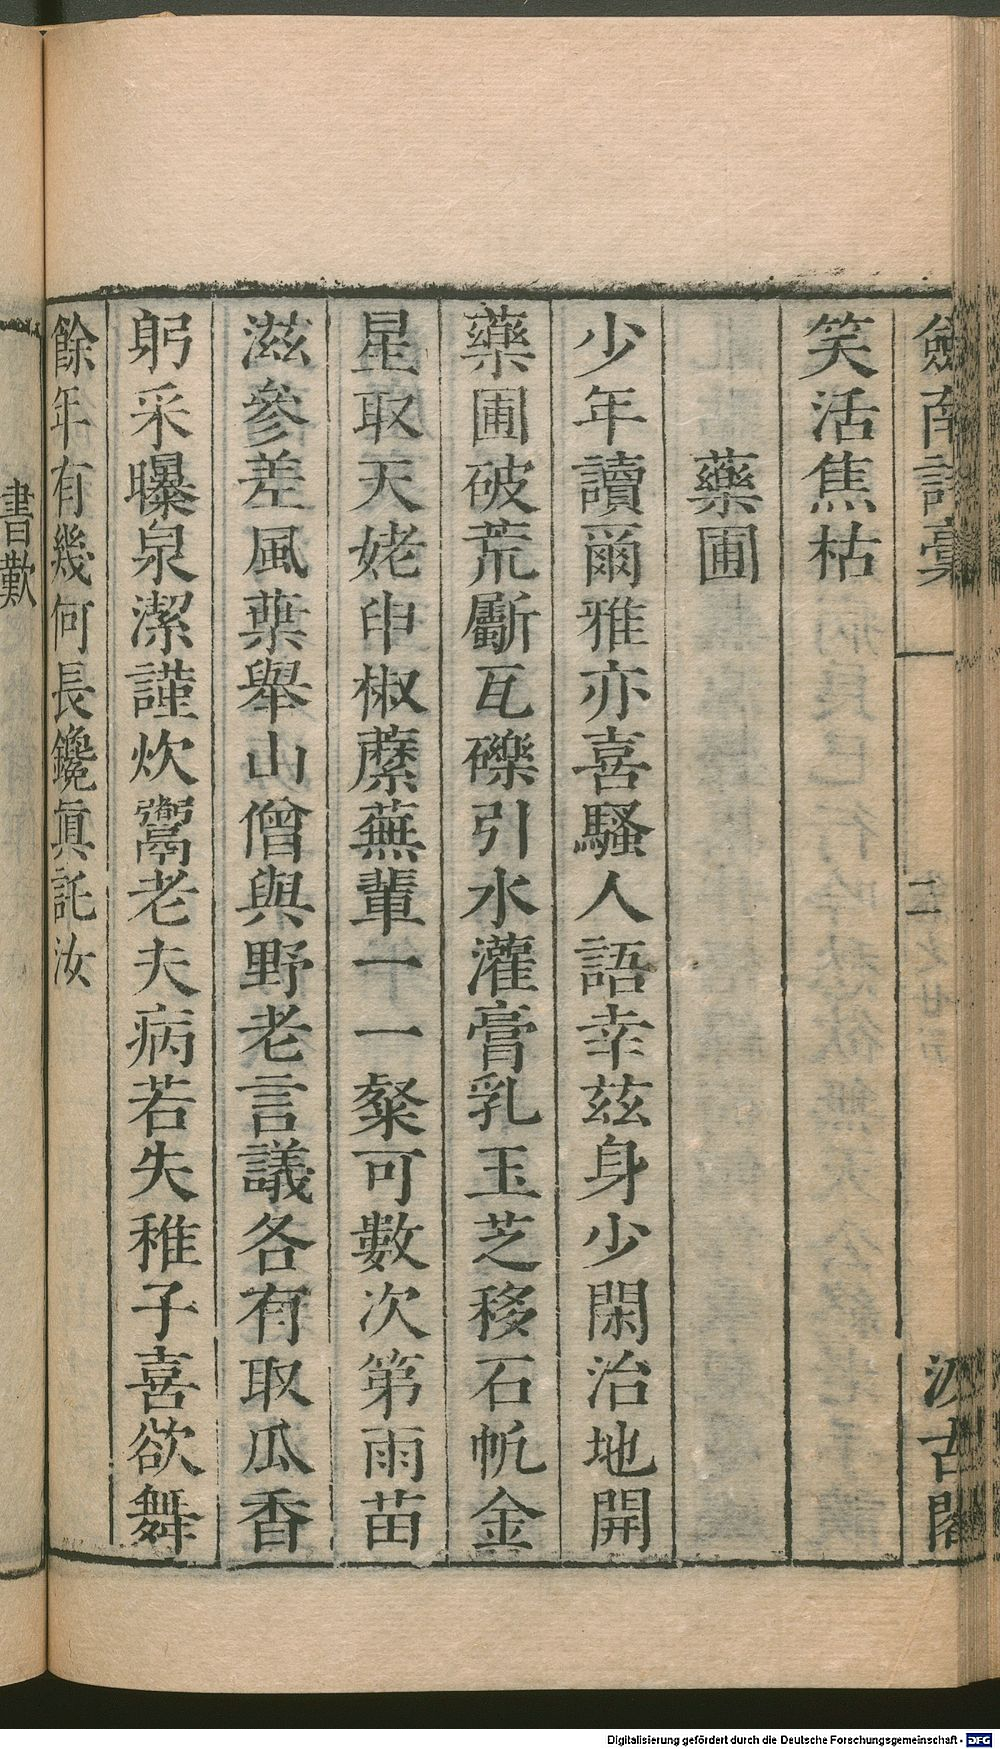 劍南詩稾
二
汲古閣
笑活焦枯
藥圃
少年讀爾雅亦喜騷人語幸茲身少閑治地開
藥圃破荒斸瓦礫引水灌膏乳玉芝移石帆金
星取天姥申椒蘪蕪輩一一粲可數次第雨苗
滋參差風葉舉山僧與野老言議各有取瓜香
躬采曝泉潔謹炊鬻老夫病若失稚子喜欲舞
餘年有幾何長鑱眞託汝
書歎
Digitalisierung gefördert durch die Deutsche Forschungsgemeinschaft - DFG